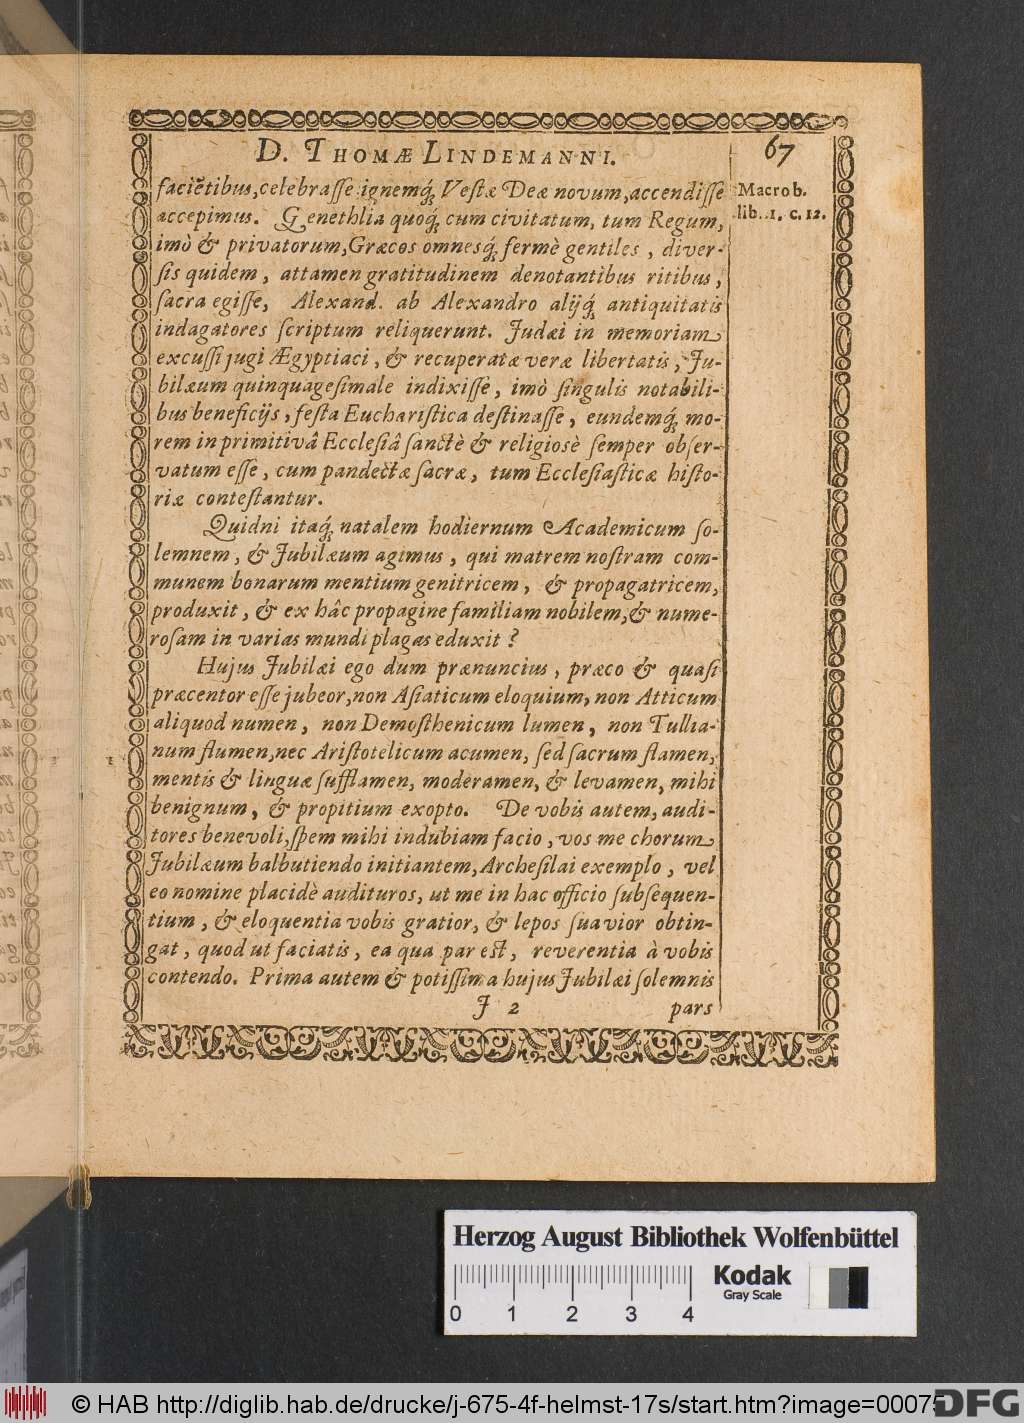 D. THOMÆ LINDEMANNI. 67
faciẽtibus, celebraſſe ignemq́; Veſtæ Deæ novum, accendiſſe
accepimus. Genethlia quoq́; cum civitatum, tum Regum,
imò & privatorum, Græcos omnesq́; fermè gentiles, diver-
ſis quidem, attamen gratitudinem denotantibus ritibus,
ſacra egiſſe, Alexand. ab Alexandro alijq́; antiquitatis
indagatores ſcriptum reliquerunt. Judæi in memoriam
excuſſi jugi Ægyptiaci, & recuperatæ veræ libertatis, Ju-
bilæum quinquageſimale indixiſſe, imò ſingulis notabili-
bus beneficijs, feſta Euchariſtica deſtinaſſe, eundemq́; mo-
rem in primitivâ Eccleſiâ ſanctè & religiosè ſemper obſer-
vatum eſſe, cum pandectæ ſacræ, tum Eccleſiaſticæ hiſto-
riæ conteſtantur.
Quidni itaq́; natalem hodiernum Academicum ſo-
lemnem, & Jubilæum agimus, qui matrem noſtram com-
munem bonarum mentium genitricem, & propagatricem,
produxit, & ex hâc propagine familiam nobilem, & nume-
roſam in varias mundi plagas eduxit?
Hujus Jubilæi ego dum prænuncius, præco & quaſi
præcentor eſſe jubeor, non Aſiaticum eloquium, non Atticum
aliquod numen, non Demoſthenicum lumen, non Tullia-
num flumen, nec Ariſtotelicum acumen, ſed ſacrum flamen,
mentis & linguæ ſufflamen, moderamen, & levamen, mihi
benignum, & propitium exopto. De vobis autem, audi-
tores benevoli, ſpem mihi indubiam facio, vos me chorum
Jubilæum balbutiendo initiantem, Archeſilai exemplo, vel
eo nomine placidè audituros, ut me in hac officio ſubſequen-
tium, & eloquentia vobis gratior, & lepos ſuavior obtin-
gat, quod ut faciatis, ea qua par eſt, reverentia à vobis
contendo. Prima autem & potiſſima hujus Jubilæi ſolemnis
J 2 pars
Macrob.
lib. 1. c. 12.
Herzog August Bibliothek Wolfenbüttel
Kodak
Gray Scale
0 1 2 3 4
© HAB http://diglib.hab.de/drucke/j-675-4f-helmst-17s/start.htm?image=00075
DFG